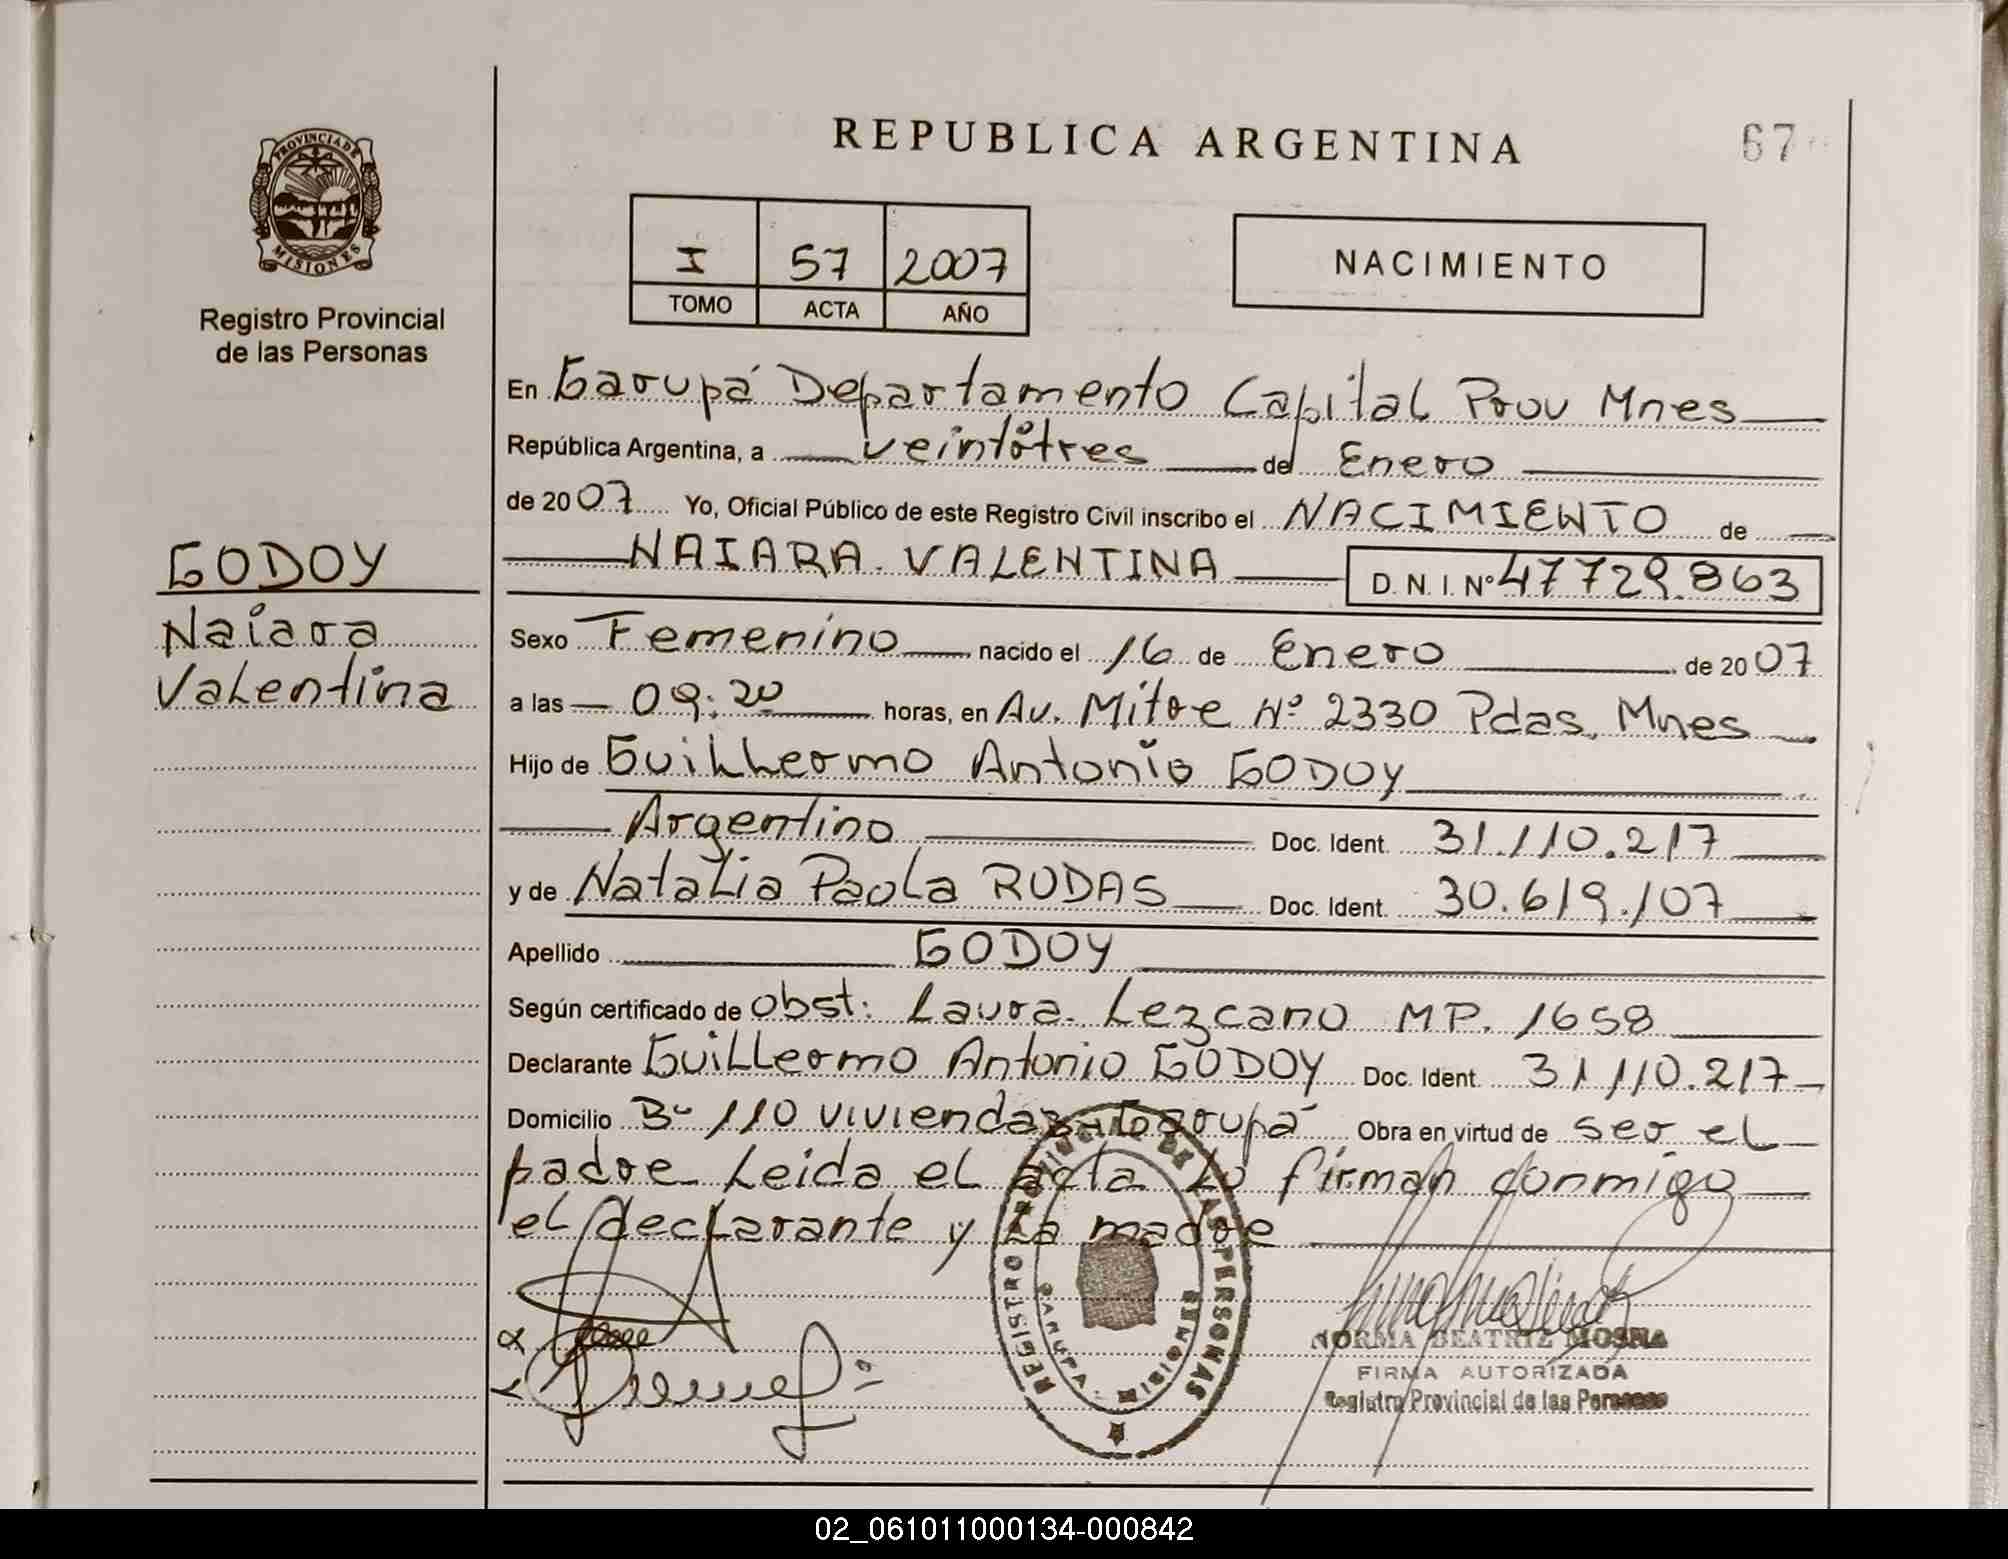 PROVINCIA DE
MISIONES
Registro Provincial
de las Personas
GODOY
Naiara
Valentina
REPUBLICA ARGENTINA
67
I 57 2007
TOMO ACTA AÑO
NACIMIENTO
En Garupá Departamento Capital Prov Mnes
República Argentina, a veintitres de Enero
de 2007 Yo, Oficial Público de este Registro Civil inscribo el NACIMIENTO de
NAIARA VALENTINA D. N. I. Nº 47729.863
Sexo Femenino nacido el 16 de Enero de 2007
a las 09:20 horas, en Av. Mitre Nº 2330 Pdas, Mnes
Hijo de Guillermo Antonio GODOY
Argentino Doc. Ident. 31.110.217
y de Natalia Paola RODAS Doc. Ident. 30.619.107
Apellido GODOY
Según certificado de Obst: Laura Lezcano MP. 1658
Declarante Guillermo Antonio GODOY Doc. Ident. 31.110.217
Domicilio Bº 110 viviendas - Garupá Obra en virtud de ser el
padre Leida el acta la firman conmigo
el declarante y la madre
REGISTRO PROVINCIAL DE LAS PERSONAS
GARUPA - MISIONES
NORMA BEATRIZ
FIRMA AUTORIZADA
Registro Provincial de las Personas
02_061011000134-000842